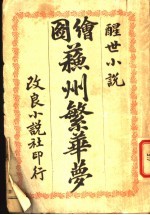 醒世小説
繪圖
蘇州繁華夢
改良小説社印行